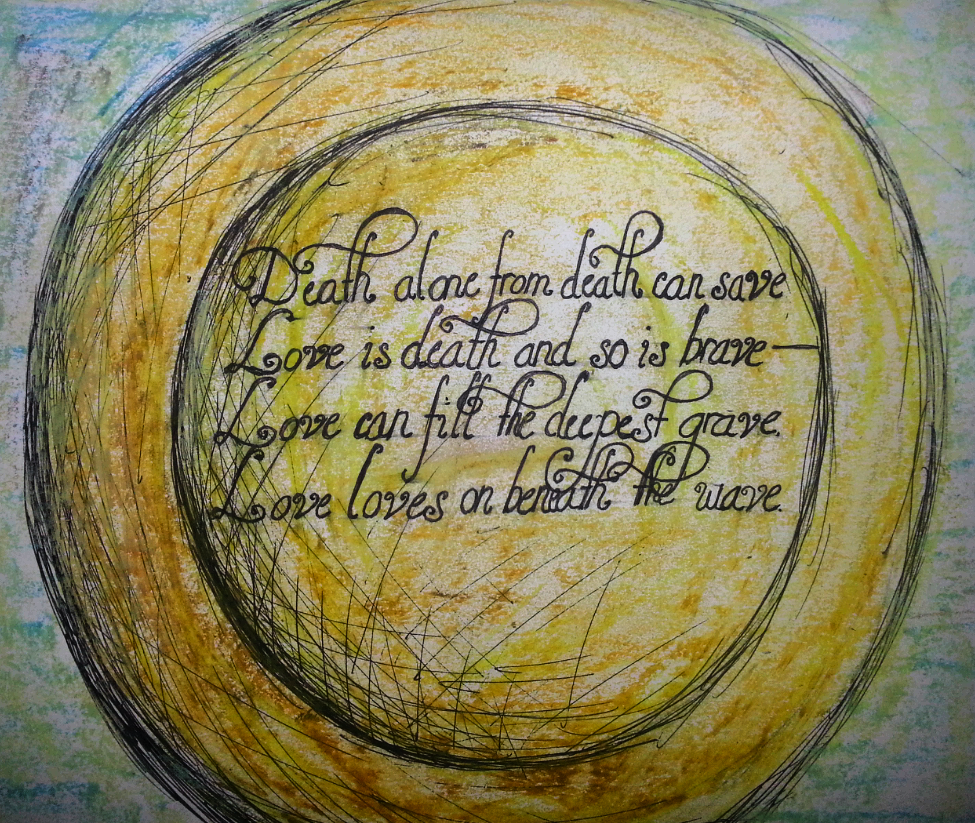 Death alone from death can save
Love is death and so is brave—
Love can fill the deepest grave.
Love loves on beneath the wave.